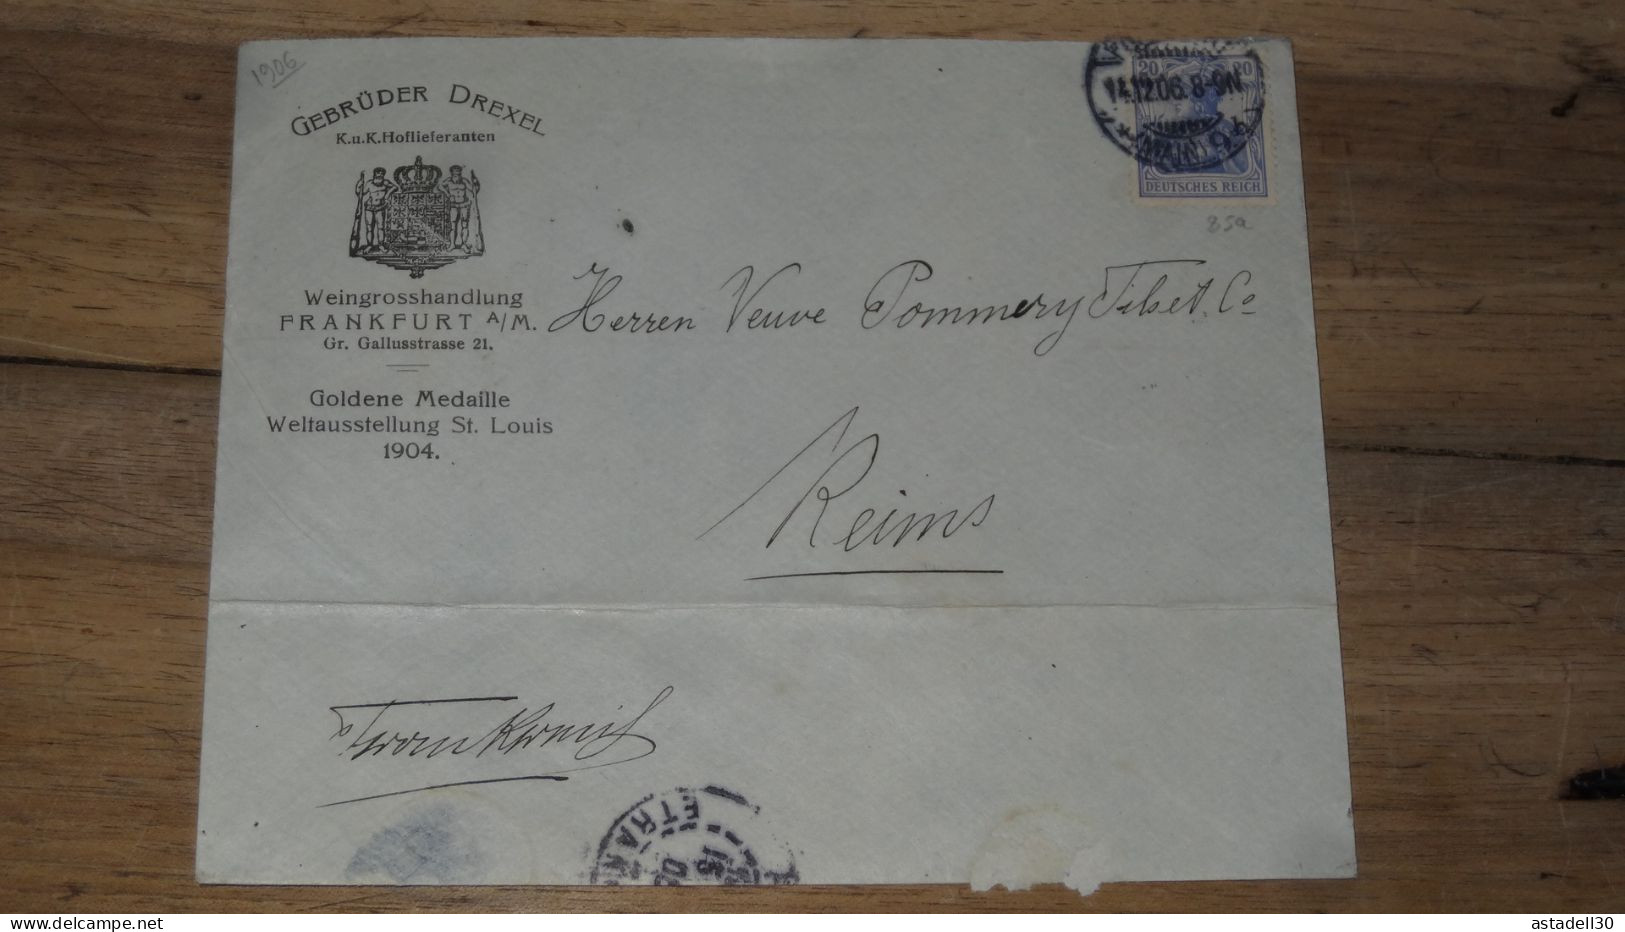 1906
GEBRÜDER DREXEL
K.u.K.Hoflieferanten
Weingrosshandlung
FRANKFURT A/M.
Gr. Gallusstrasse 21.
Goldene Medaille
Weltausstellung St. Louis
1904.
20 20
14.12.06. 8-9N.
(MAIN) 9
DEUTSCHES REICH
85a
Herren Veuve Pommery Fils et Co
Reims
Frankreich
ETRAN
15
astadell30